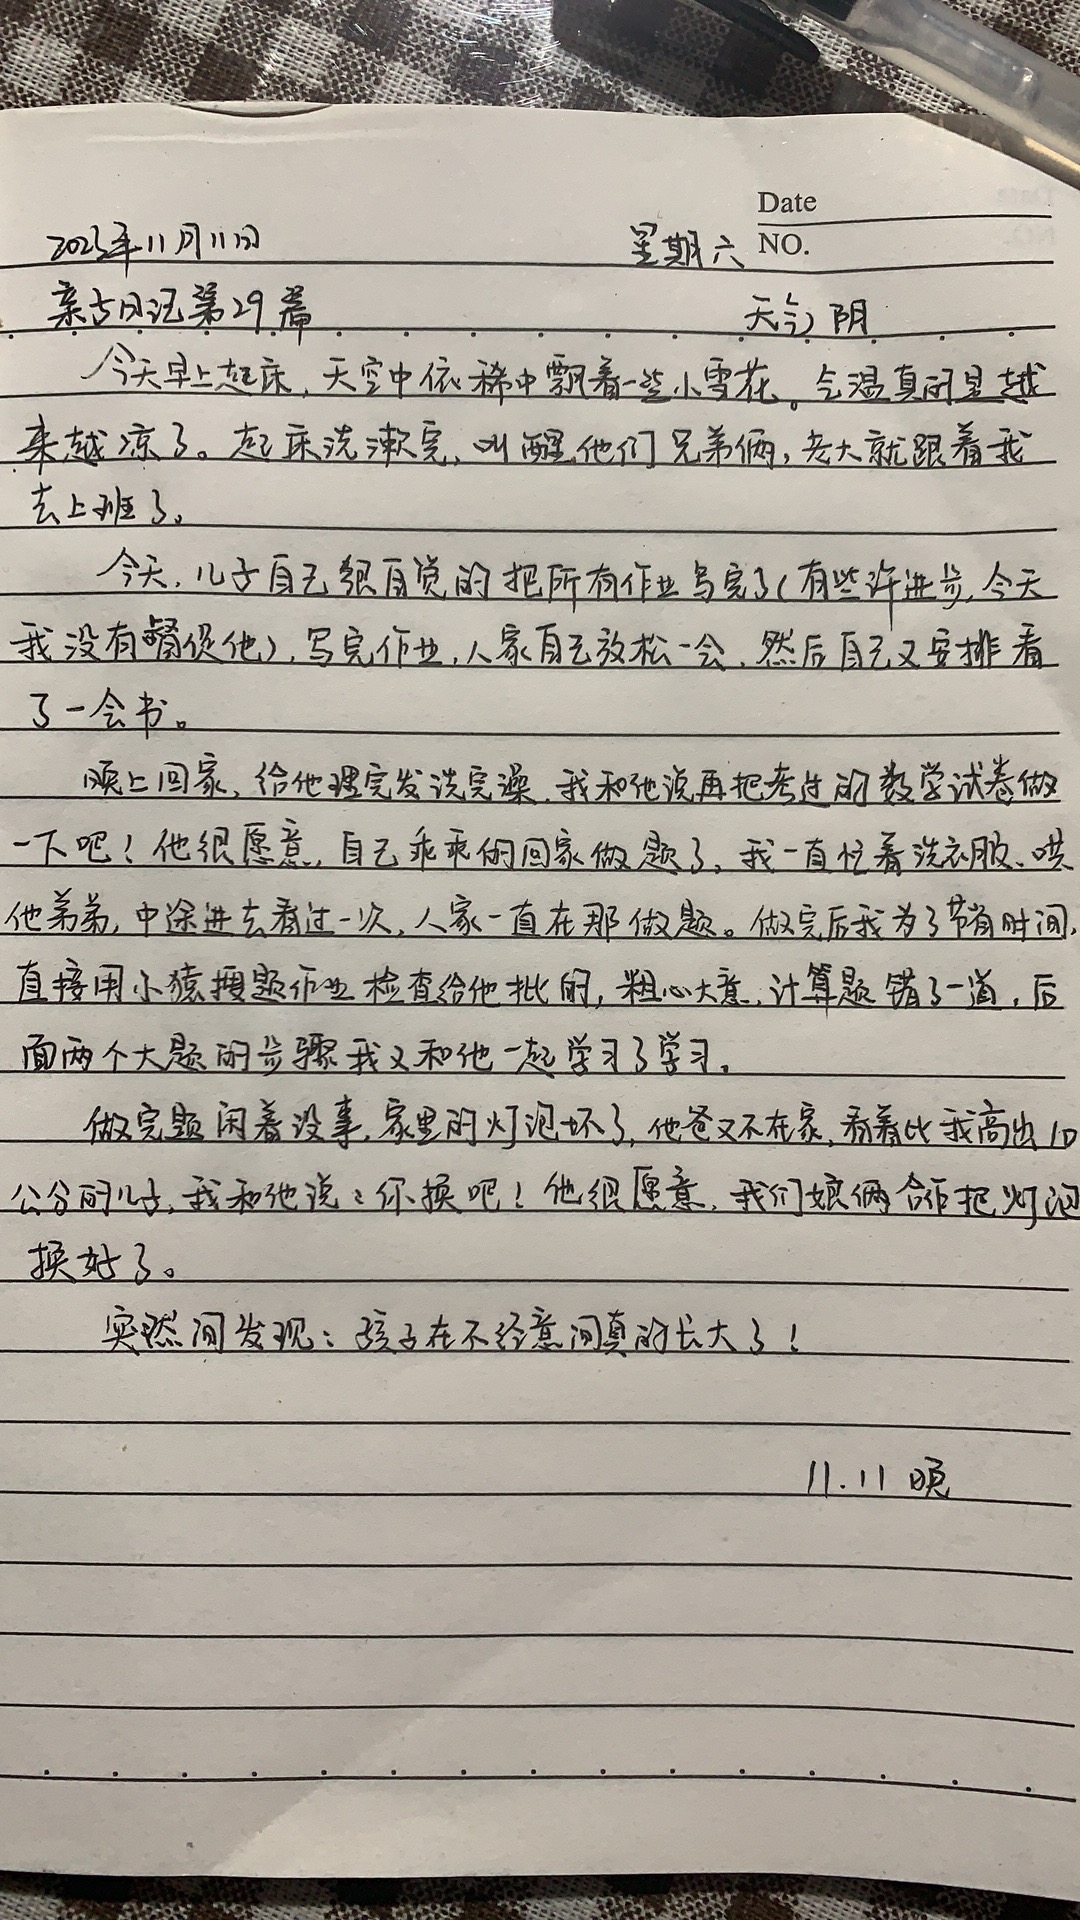 Date
2023年11月11日 星期六 NO.
亲子日记第29篇 天气阴
今天早上起床,天空中依稀中飘着一些小雪花。气温真的是越
来越凉了。起床洗漱完,叫醒他们兄弟俩,老大就跟着我
去上班了。
今天,儿子自己很自觉的把所有作业写完了(有些许进步,今天
我没有督促他),写完作业,人家自己放松一会,然后自己又安排看
了一会书。
晚上回家,给他理完发洗完澡,我和他说再把考过的数学试卷做
一下吧!他很愿意,自己乖乖的回家做题了,我一直忙着洗衣服、哄
他弟弟,中途进去看过一次,人家一直在那做题。做完后我为了节省时间,
直接用小猿搜题作业检查给他批的,粗心大意,计算题错了一道,后
面两个大题的步骤我又和他一起学习了学习。
做完题闲着没事,家里的灯泡坏了,他爸又不在家,看着比我高出10
公分的儿子,我和他说:你换吧!他很愿意,我们娘俩合作把灯泡
换好了。
突然间发现:孩子在不经意间真的长大了!
11.11 晚